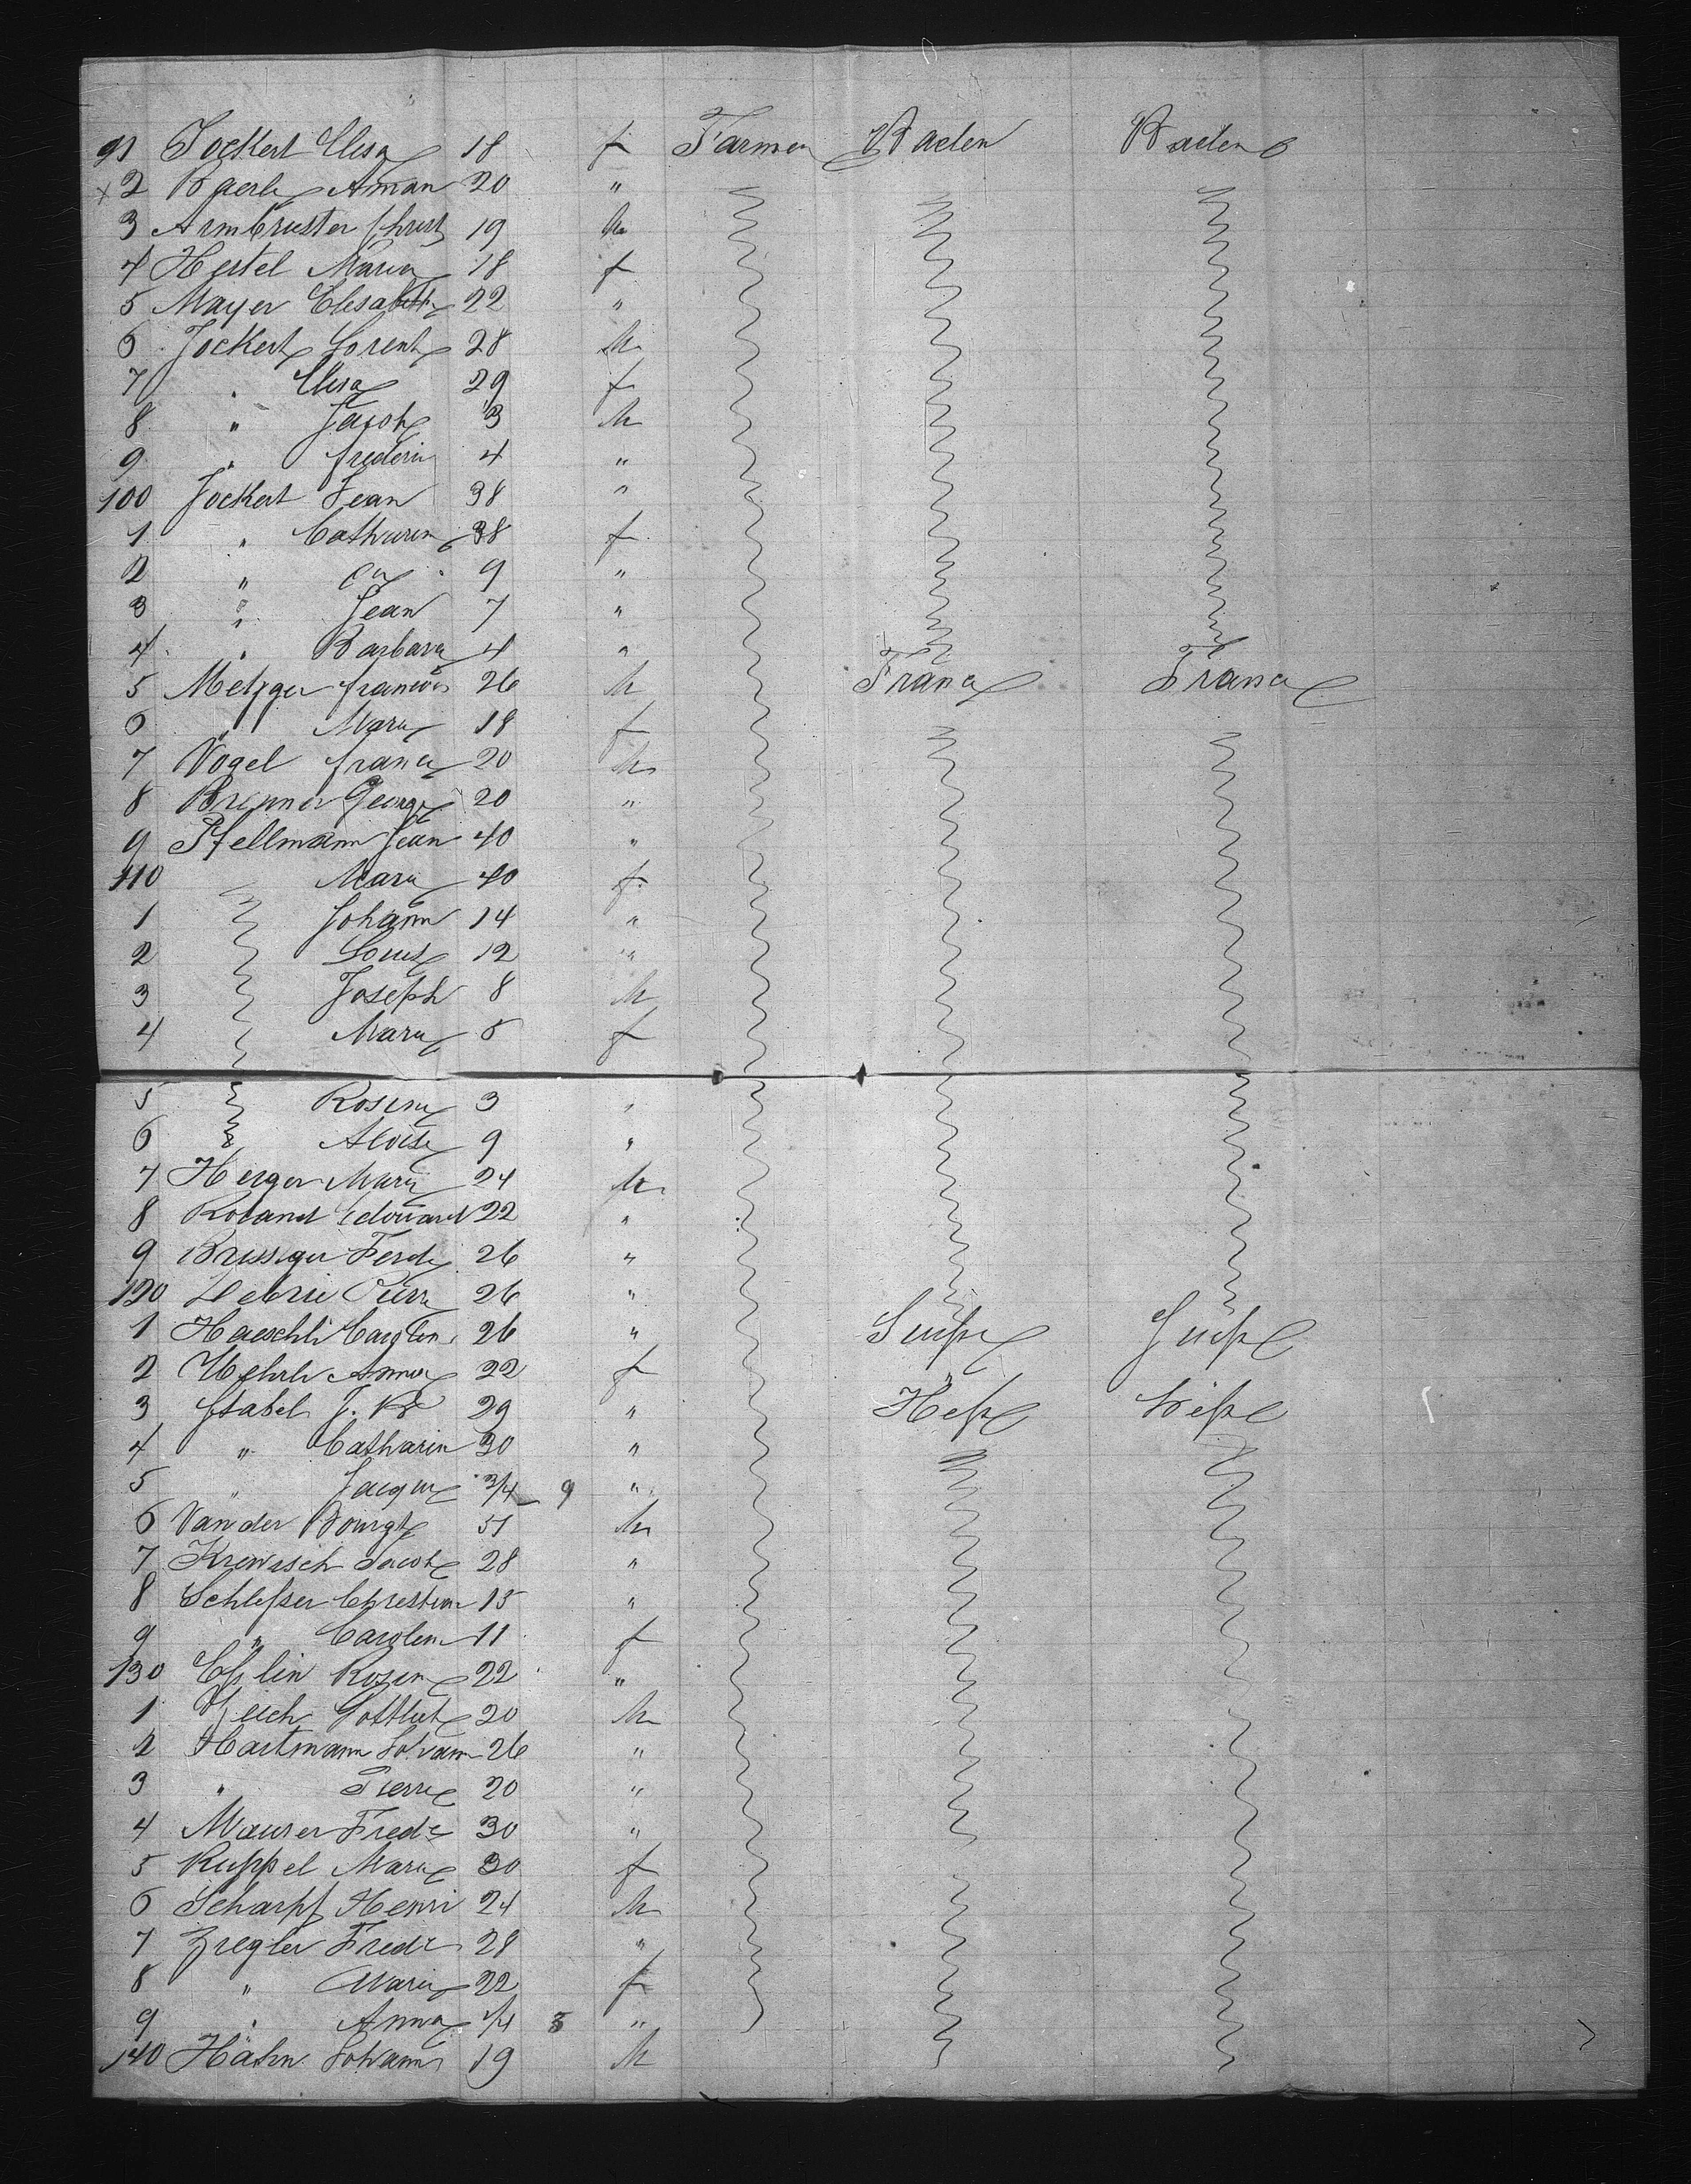 91 Jockert Elisa 18 f Farmer Baden Baden
x 2 Baerle Aman 20 "
3 Armbruster Christ 19 M
4 Hertel Maria 18 f
5 Mayer Elisabeth 22 "
6 Jockert Lorent 28 M
7 " Elisa 29 f
8 " Jacob 3 M
9 " frederic 4 "
100 Jockert Jean 38 "
1 " Catharin 38 f
2 " 9 "
3 " Jean 7 "
4 " Barbara 4 "
5 Metzger francois 26 M France France
6 " Marie 18 f
7 Vogel france 20 M
8 Brenner George 20 "
9 Stellmann Jean 40 "
110 Marie 40 f
1 Johann 14 "
2 Louis 12 "
3 Joseph 8 M
4 Marie 5 f
5 Rosina 3 "
6 Aloise 9 "
7 Herger Marie 24 M
8 Roland Edouard 22 "
9 Brissiger Ferd 26 "
120 Debrie Pierre 26 "
1 Haeschli Carolin 26 " Suisse Suisse
2 Wehrli Anna 22 f
3 Stabel J. 29 " Hesse Hesse
4 " Catharin 30 "
5 " Jacque 3/4 9 "
6 Van der Bourgt 51 M
7 Krewisch Jacob 28 "
8 Schlesser Christian 15 "
9 " Carolin 11 f
130 Esslin Rosin 22 "
1 Gottlieb 20 M
2 Hartmann Johann 26 "
3 " Pierre 20 "
4 Maurer Fredc 30 "
5 Ruppel Marie 30 f
6 Scharpf Henri 24 M
7 Ziegler Fredc 28 "
8 " Marie 22 f
9 " Anna 1/4 3 "
140 Hähn Johann 19 M